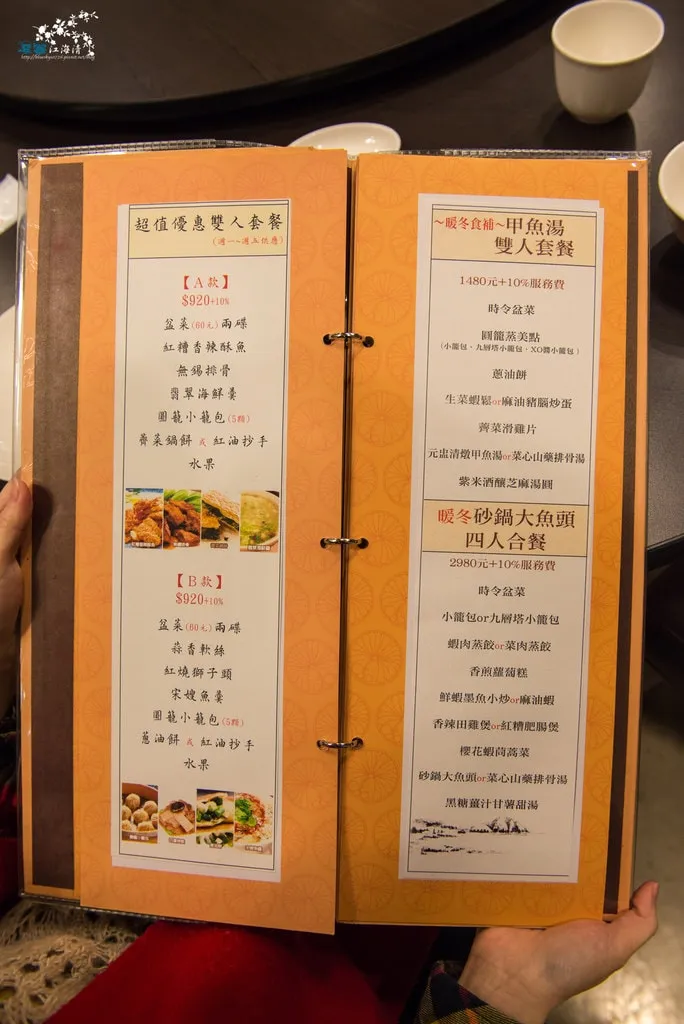 江海清
超值優惠雙人套餐
(週一~週五供應)
【A款】
$920+10%
盆菜(60元)兩碟
紅糟香辣酥魚
無錫排骨
翡翠海鮮羹
圓籠小籠包(5顆)
薺菜鍋餅 或 紅油抄手
水果
【B款】
$920+10%
盆菜(60元)兩碟
蒜香軟絲
紅燒獅子頭
宋嫂魚羹
圓籠小籠包(5顆)
蔥油餅 或 紅油抄手
水果
~暖冬食補~甲魚湯
雙人套餐
1480元+10%服務費
時令盆菜
圓籠蒸美點
(小籠包．九層塔小籠包．XO醬小籠包)
蔥油餅
生菜蝦鬆or麻油豬腦炒蛋
薺菜滑雞片
元盅清燉甲魚湯or菜心山藥排骨湯
紫米酒釀芝麻湯圓
暖冬砂鍋大魚頭
四人合餐
2980元+10%服務費
時令盆菜
小籠包or九層塔小籠包
蝦肉蒸餃or菜肉蒸餃
香煎蘿蔔糕
鮮蝦墨魚小炒or麻油蝦
香辣田雞煲or紅糟肥腸煲
櫻花蝦茼蒿菜
砂鍋大魚頭or菜心山藥排骨湯
黑糖薑汁甘薯甜湯